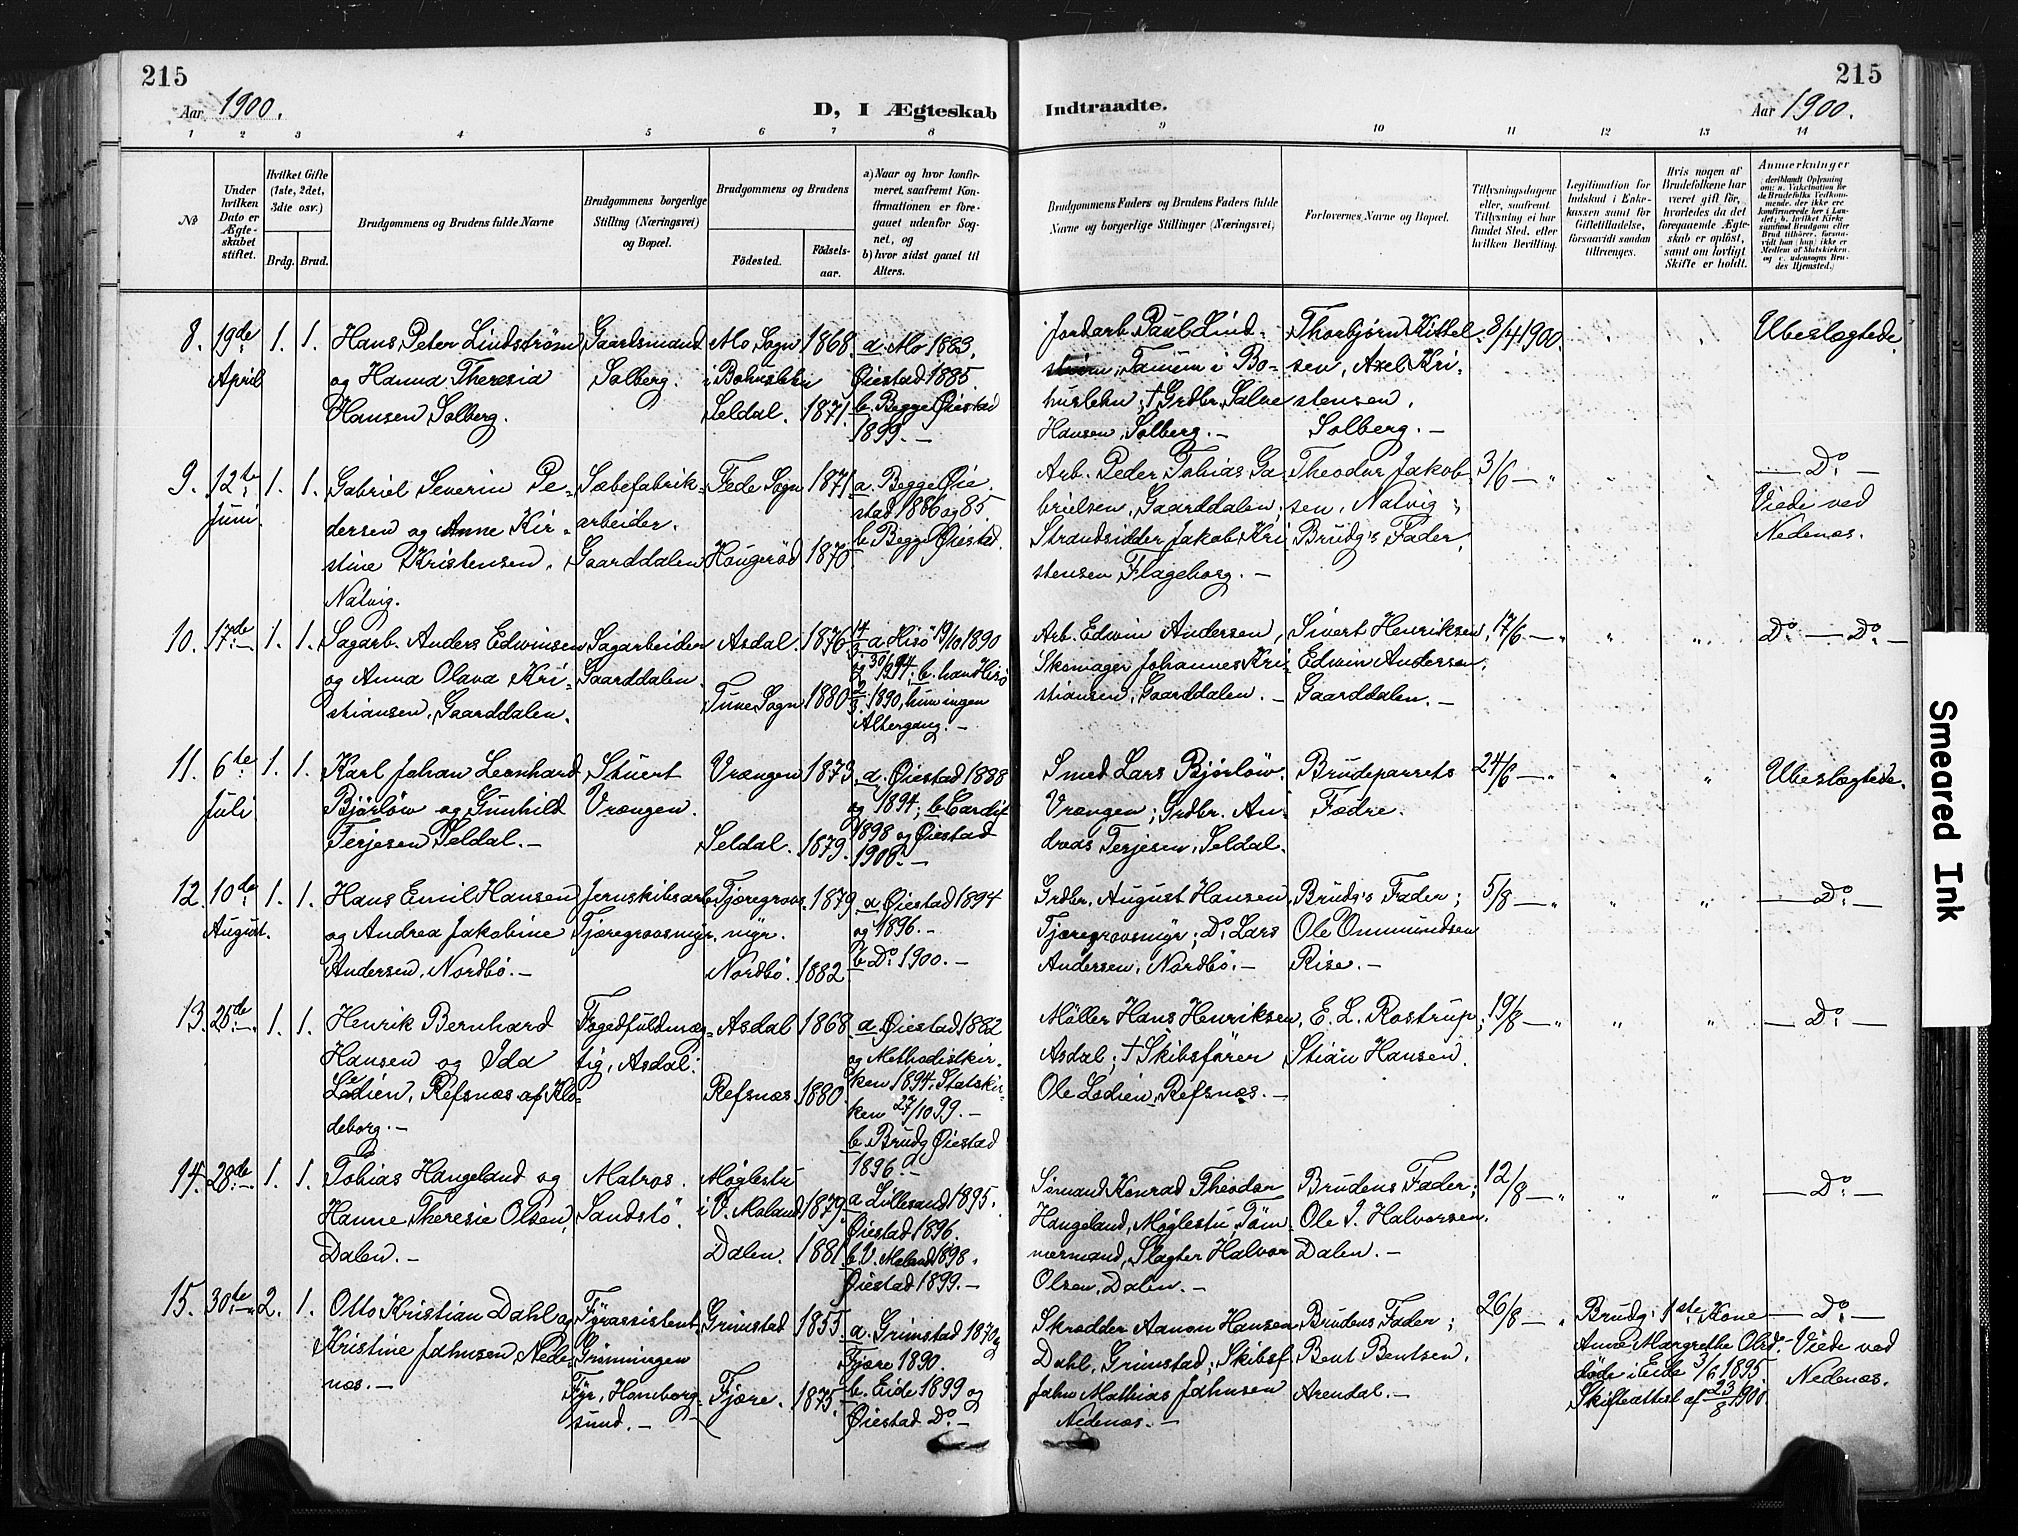 215
215
Aar 1900.
D, I Ægteskab
Indtraadte.
Aar 1900.
1 2 3 4 5 6 7 8 9 10 11 12 13 14
№
Under hvilken Dato er Ægteskabet stiftet.
Hvilket Gifte (1ste, 2det, 3die osv.)
Brdg. Brud.
Brudgommens og Brudens fulde Navne
Brudgommens borgerlige Stilling (Næringsvei) og Bopæl.
Brudgommens og Brudens
Fødested.
Fødselsaar.
a) Naar og hvor konfirmeret, saafremt Konfirmationen er foregaaet udenfor Sognet, og
b) hvor sidst gaaet til Alters.
Brudgommens Faders og Brudens Faders fulde Navne og borgerlige Stillinger (Næringsvei)
Forlovernes Navne og Bopæl.
Tillysningsdagene eller, saafremt Tillysning ei har fundet Sted, efter hvilken Bevilling.
Legitimation for Indskud i Enkekassen samt for Giftetilladelse, forsaavidt saadan tiltrænges.
Hvis nogen af Brudefolkene har været gift før, hvorledes da det foregaaende Ægteskab er opløst, samt om lovligt Skifte er holdt.
Anmerkninger
deriblandt Oplysning om: a. Vakcination for de Brudefolks Vedkommende, der ikke ere konfirmerede her i Landet; b. hvilket Kirkesamfund Brudgom eller Brud tilhører, forsaavidt han (hun) ikke er Medlem af Statskirken, og c. udensogns Brudes Hjemsted.)
8. 19de April 1. 1.
Hans Peter Lindstrøm
og Hanna Theresia
Hansen Solberg.
Gaardsmand
Solberg.
Mo Sogn 1868.
i Bohuslehn
Seldal. 1871.
a. Mo 1883.
Øiestad 1885.
b. Begge Øiestad
1899. —
Jordarb. Paul Lind-
strøm, Tanum i Bo-
huslehn; † Grdbr. Salve
Hansen, Solberg. —
Thorbjørn Kittel-
sen, Axel Kri-
stensen,
Solberg. —
8/4 1900.
Ubeslægtede.
9. 12te Juni 1. 1.
Gabriel Severin Pe-
dersen og Anne Kir-
stine Kristensen,
Natvig.
Sæbefabrik-
arbeider.
Gaarddalen
Fede Sogn 1871
Haugerød 1870
a. Begge Øie-
stad 1886 og 85
b. Begge Øiestad.
Arb. Peder Tobias Ga-
brielsen, Gaarddalen;
Strandsidder Jakob Kri-
stensen Flageborg. —
Theodor Jakob-
sen, Natvig;
Brudg's Fader.
3/6 — "
— Do. —
Viede ved
Nedenæs.
10. 17de — 1. 1.
Sagarb. Anders Edwinsen
og Anna Olava Kri-
stiansen, Gaarddalen.
Sagarbeider
Gaarddalen.
Asdal. 1876
Tune Sogn 1880
a. Hisö 19/10 1890
b. han Hisö
1890, hun ingen
Altergang. —
Arb. Edwin Andersen,
Skomager Johannes Kri-
stiansen, Gaarddalen. —
Sivert Henriksen,
Edwin Andersen,
Gaarddalen. —
17/6 — "
Do. — Do. —
11. 6te Juli 1. 1.
Karl Johan Leonhard
Bjørlöw og Gunhild
Terjesen Seldal. —
Stuert
Vrængen.
Vrængen 1873
Seldal. 1879.
a. Øiestad 1888
og 1894; b. Cardif
1898 og Øiestad
1900. —
Smed Lars Bjørlöw.
Vrængen; Grdbr. An-
dreas Terjesen, Seldal.
Brudeparrets
Fædre.
24/6 — "
Ubeslægtede.
12. 10de August. 1. 1.
Hans Emil Hansen
og Andrea Jakobine
Andersen, Nordbö. —
Jernskibsarb.
Tjæregravsmyr.
Tjæregravs- 1879
myr.
Nordbö. 1882
a. Øiestad 1894
og 1896. —
b. Do. 1900. —
Grdbr. August Hansen
Tjæregravsmyr; Do. Lars
Andersen, Nordbö. —
Brudg's Fader;
Ole Ommundsen
Rise. —
5/8 — "
— Do. —
13. 25de — 1. 1.
Henrik Bernhard
Hansen og Ida
Ledien, Refsnæs af Flo-
deborg. —
Fogedfuldmæg-
tig, Asdal.
Asdal 1868
Refsnæs 1880
a. Øiestad 1882
og Methodistkir-
ken 1894. Statskir-
ken 27/10 99. —
b. Brudg Øiestad
1896. —
Møller Hans Henriksen,
Asdal; † Skibsfører
Ole Ledien, Refsnæs. —
E. L. Rostrup,
Stian Hansen.
19/8 — "
— Do. —
14. 28de — 1. 1.
Tobias Hangeland og
Hanne Theresie Olsen,
Dalen. —
Matros.
Sandstö.
Møglestu
i V. Moland 1879
Dalen. 1881
a. Lillesand 1895.
Øiestad 1896.
b. V. Moland 1898.
Øiestad 1899. —
Sømand Konrad Theodor
Hangeland, Møglestu; Töm-
mermand, Slagter Halvor
Olsen, Dalen. —
Brudens Fader;
Ole I. Halvorsen.
Dalen. —
12/8 — "
— Do. —
15. 30te — 2. 1.
Otto Kristian Dahl og
Kristine Jahnsen, Nede-
næs. —
Fyrassistent
Grønningen
Fyr, Homborg-
sund. —
Grimstad 1855
Fjære. 1875.
a. Grimstad 1870 og
Fjære 1890.
b. Eide 1899 og
Øiestad Do. —
Skrædder Aanon Hansen
Dahl, Grimstad; Skibsf.
Jahn Mathias Jahnsen
Nedenæs. —
Brudens Fader;
Bent Bentsen,
Arendal. —
26/8 — "
Brudg. 1ste Kone
Anne Margrethe Olsd.
døde i Eide 3/6 1895.
Skifteattest af 23/8 1900.
— Do. —
Viede ved
Nedenæs.
Smeared Ink